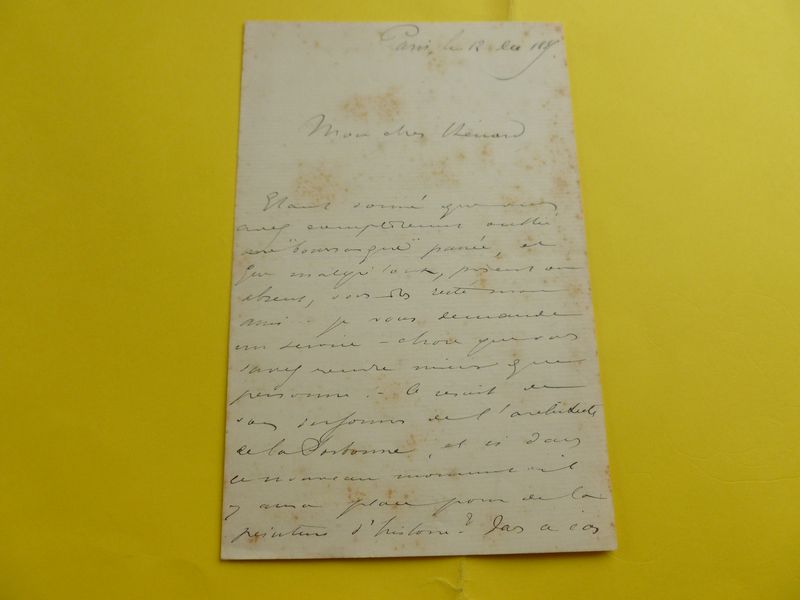 Paris, le 12
Mon cher Thénard
Etant donné que vous
avez complètement oublié
une "bourrasque" passée, et
que malgré tout, présent ou
absent, vous êtes resté mon
ami - je vous demande
un service - chose que vous
savez rendre mieux que
personne. - Ce serait de
vous informer de l'architecte
de la Sorbonne, et si dans
ce nouveau monument il
y aura place pour de la
peinture d'histoire? Dans ce cas